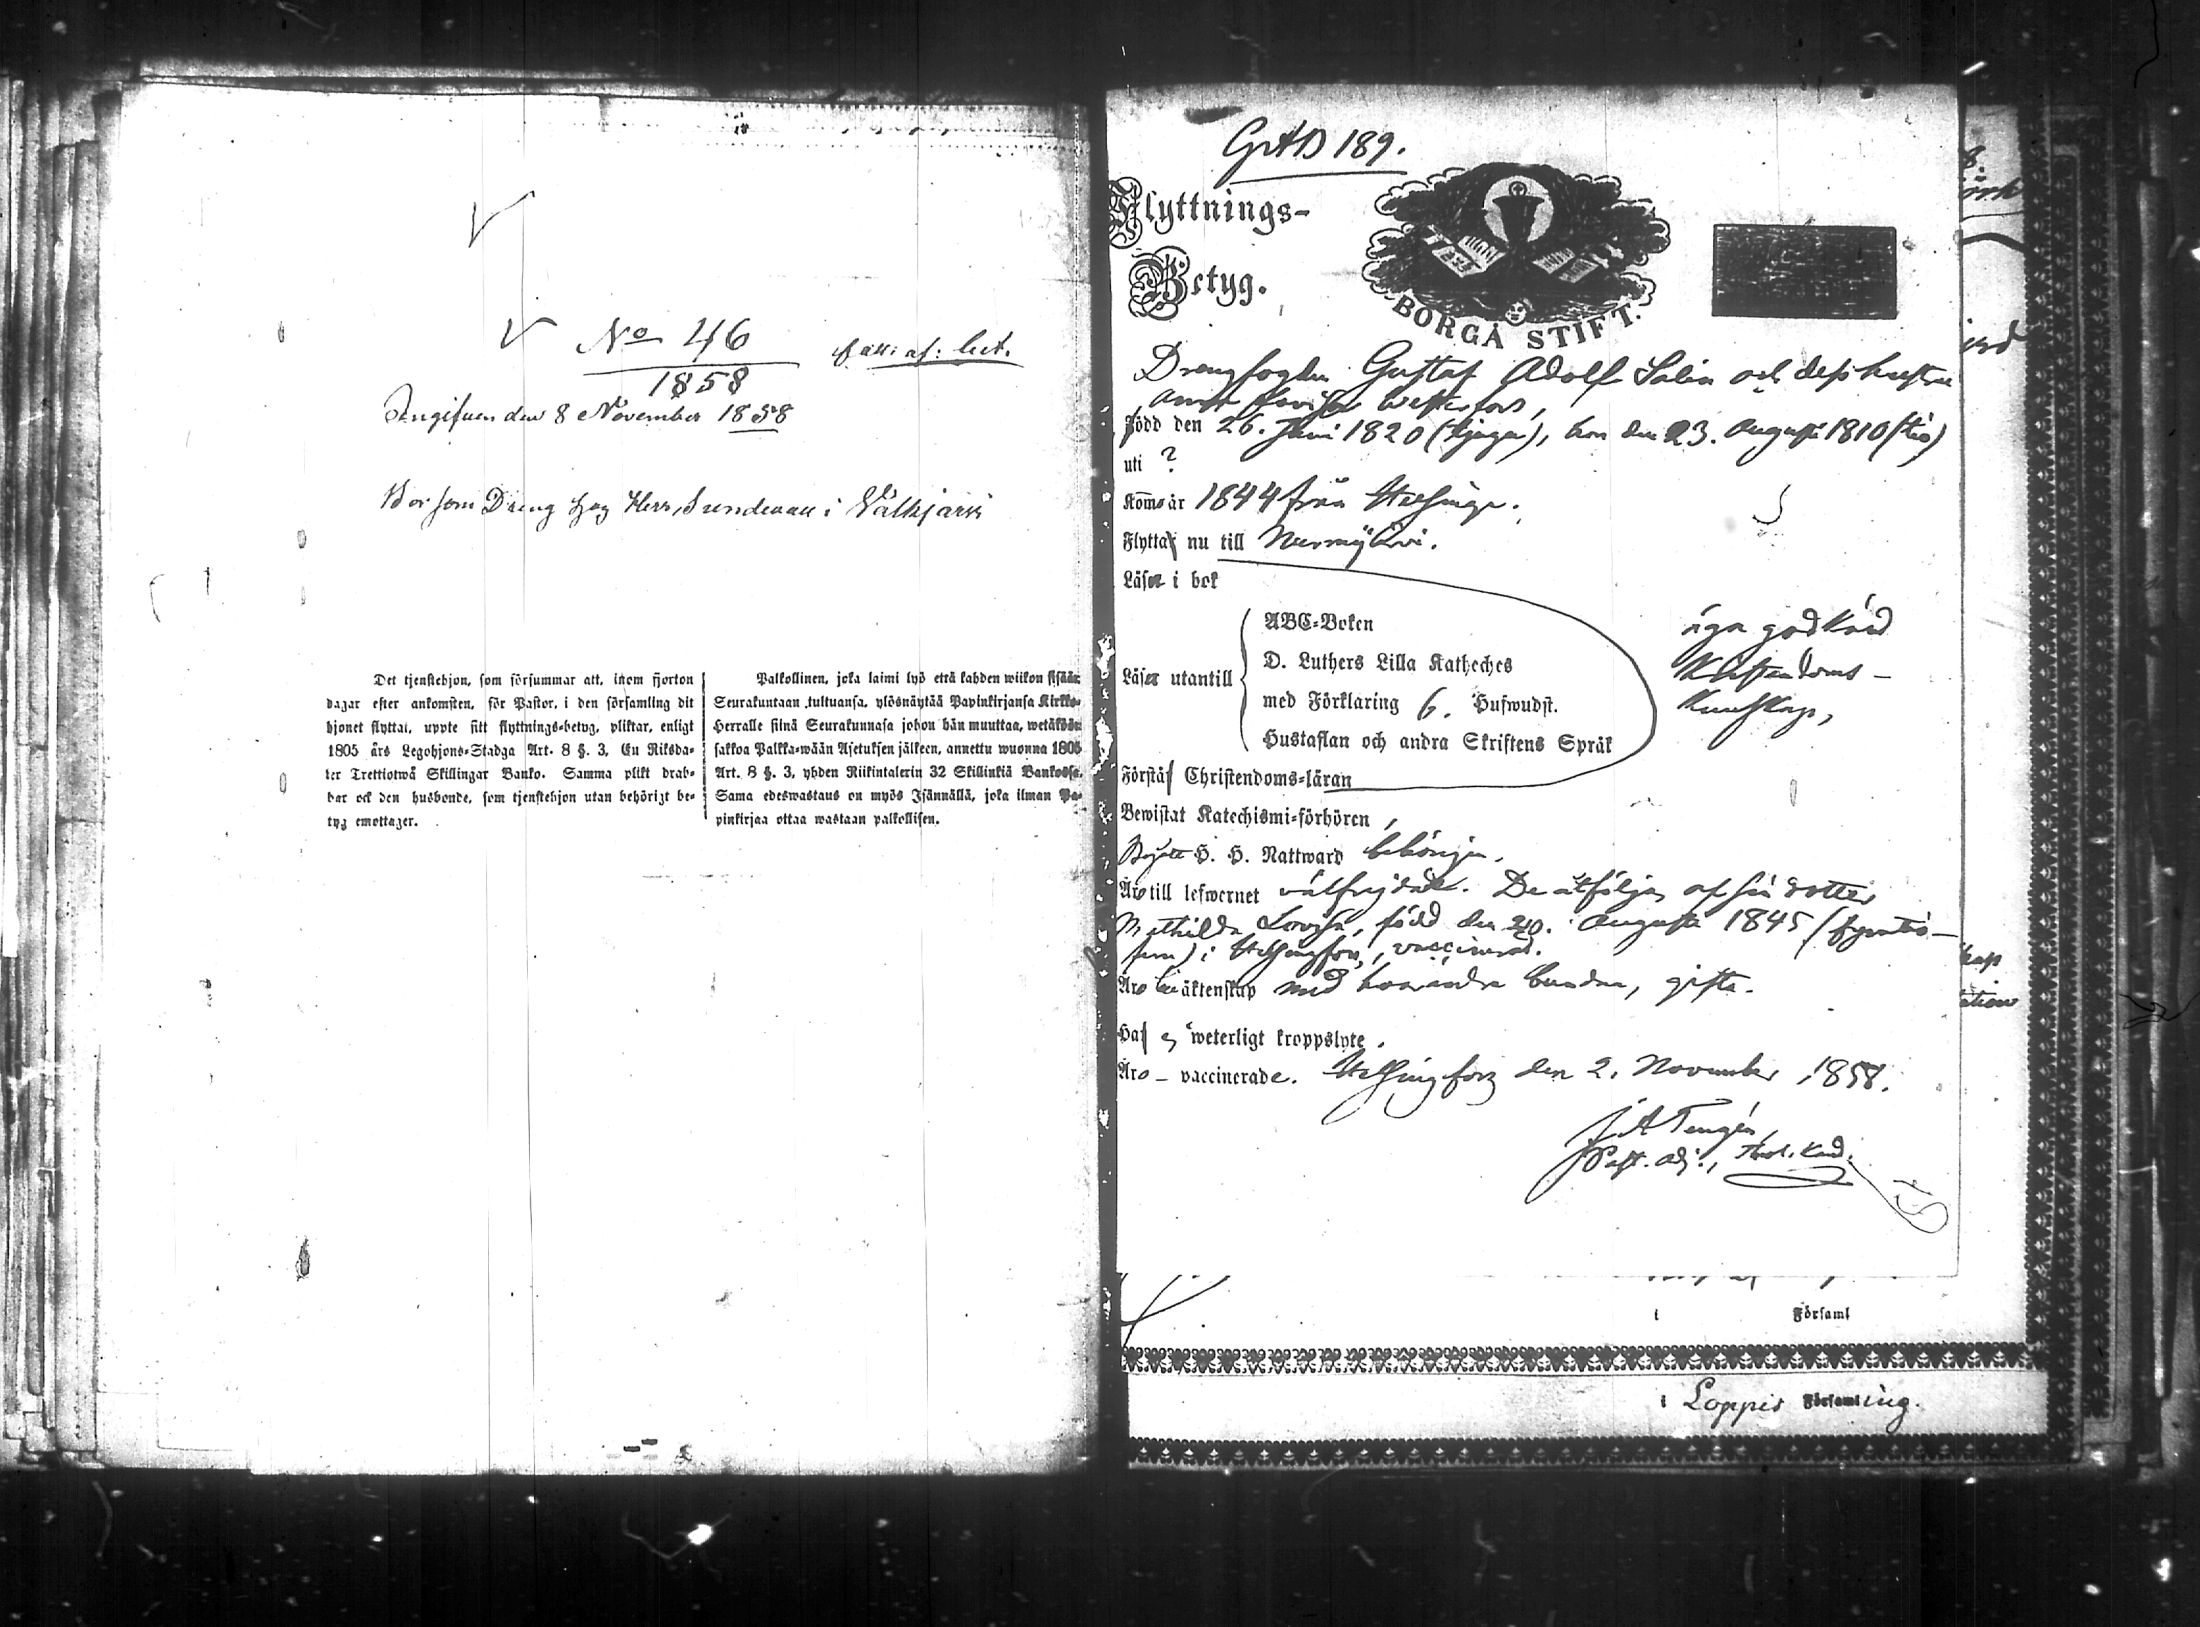 No 46
1858
Ingifven den 8 November 1858
Bor som Dreng hos Herr Sundman i Valkjärvi
Det tjenstehjon, som försummar att, inom fjorton
dagar efter ankomsten, för Pastor, i den församling dit
hjonet flyttat, uppte sitt flyttnings-betyg, pliktar, enligt
1805 års Legohjons-Stadga Art. 8 §. 3, En Riksda-
ler Trettiotwå Skillingar Banko. Samma plikt drab-
bar ock den husbonde, som tjenstehjon utan behörigt be-
tyg emottager.
Palkollinen, joka laimi lyö että kahden wiikon sisään
Seurakuntaan tultuansa, ylösnäytää Papinkirjansa Kirkko-
Herralle siinä Seurakunnasa johon hän muuttaa, wetäköön
sakkoa Palkka-wään Asetuksen jälkeen, annettu wuonna 1805
Art. 8 §. 3, yhden Riikintalerin 32 Skillinkiä Bankossa.
Sama edeswastaus on myös Isännällä, joka ilman Pa-
pinkirjaa ottaa wastaan palkollisen.
189.
Flyttnings-
Betyg.
BORGÅ STIFT.
Drengfogden Gustaf Adolf Salin och dess hustru
Anna Lovisa Westerfors,
född den 26. Juni 1820 (tjugu), hon den 23. Augusti 1810 (tio)
uti ?
Koms år 1844 från Helsinge.
Flytta nu till Nurmijärvi.
Läsa i bok
Läsa utantill
ABC-Boken
D. Luthers Lilla Katheches
med Förklaring 6. Hufwudst.
Hustaflan och andra Skriftens Språk
äga godkänd
Kristendoms-
Kunskap,
Förstå Christendoms-läran
Bewistat Katechismi-förhören,
Begått H. H. Nattward behörigen.
Äro till lefwernet välfrejdade. De åtföljas af sin dotter
Mathilda Lovisa, född den 20. Augusti 1845 (fyratio-
fem) i Helsingfors, vaccinerad.
Äro i äktenskap med hvarandra bundna, gifta.
Haf ej weterligt kroppslyte.
Äro - vaccinerade. Helsingfors den 2. November 1858.
Past. adj.,
i Församl
i Loppis Församling.